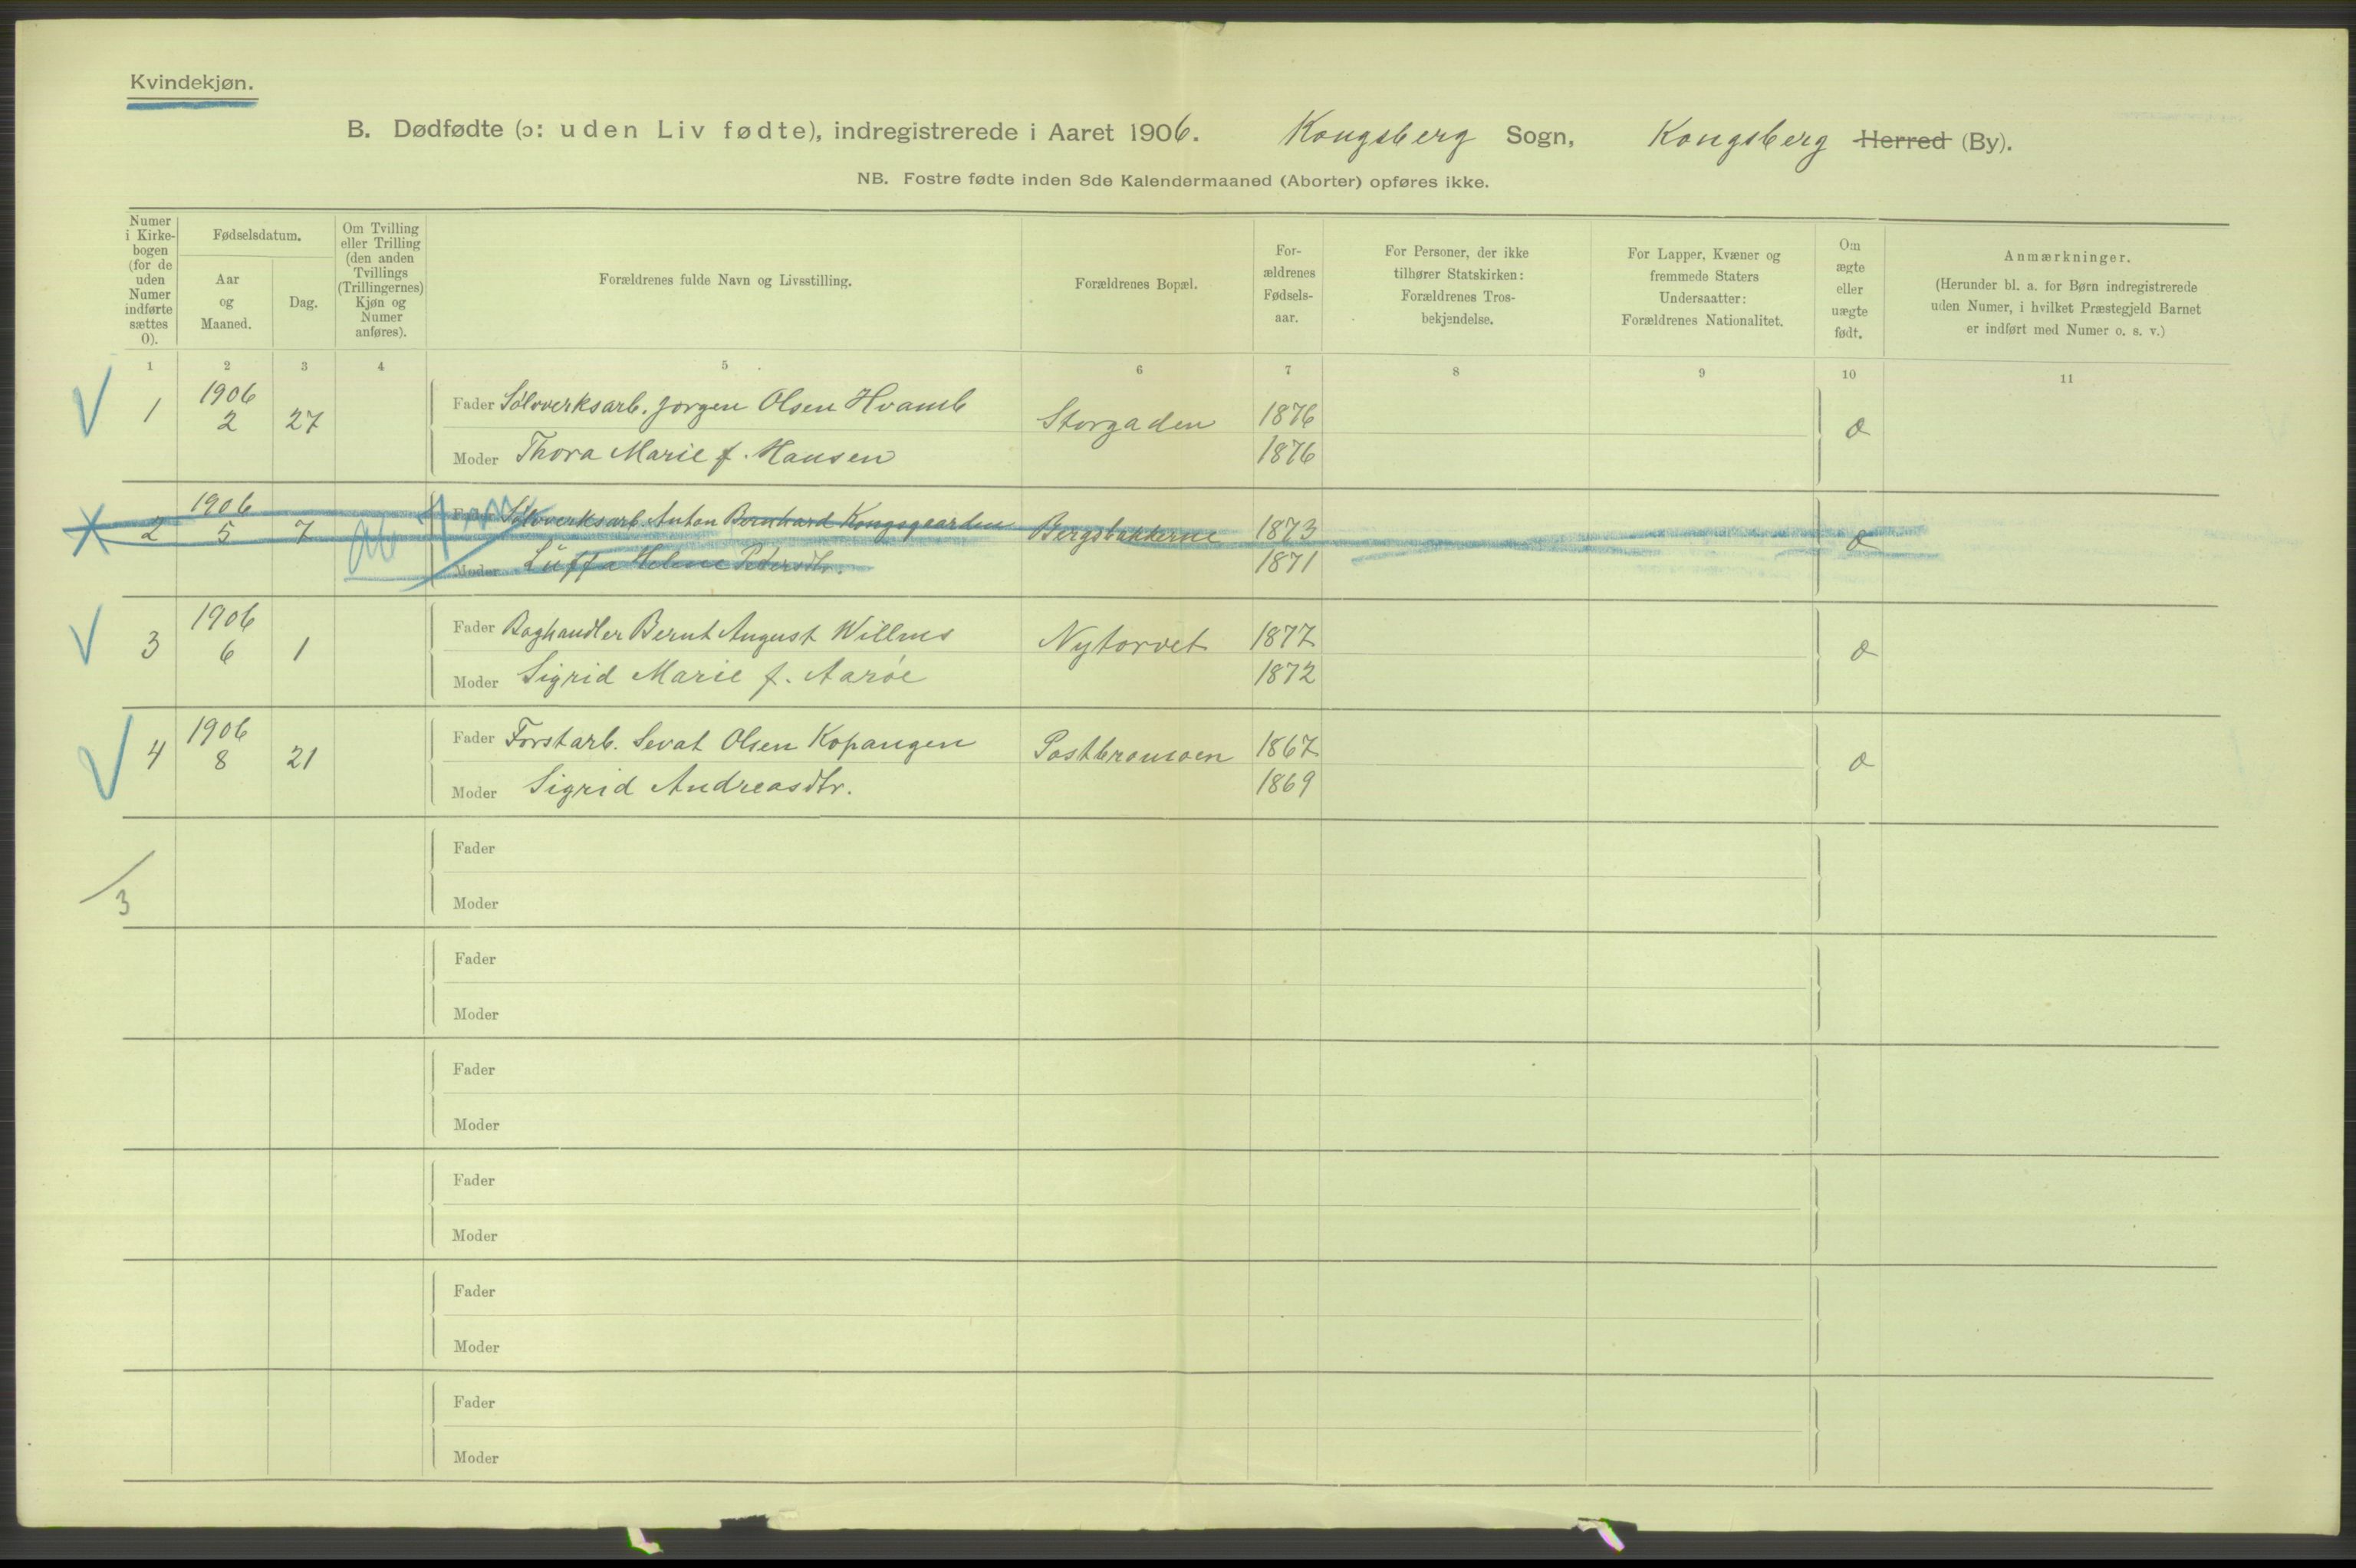 Kvindekjøn.
B. Dødfødte (ɔ: uden Liv fødte), indregistrerede i Aaret 1906. Kongsberg Sogn, Kongsberg Herred (By).
NB. Fostre fødte inden 8de Kalendermaaned (Aborter) opføres ikke.
Numer i Kirke-bogen (for de uden Numer indførte sættes 0).
Fødselsdatum.
Aar og Maaned.
Dag.
Om Tvilling eller Trilling (den anden Tvillings (Trillingernes) Kjøn og Numer anføres).
Forældrenes fulde Navn og Livsstilling.
Forældrenes Bopæl.
For-ældrenes Fødsels-aar.
For Personer, der ikke tilhører Statskirken: Forældrenes Tros-bekjendelse.
For Lapper, Kvæner og fremmede Staters Undersaatter: Forældrenes Nationalitet.
Om ægte eller uægte født.
Anmærkninger.
(Herunder bl. a. for Børn indregistrerede uden Numer, i hvilket Præstegjeld Barnet er indført med Numer o. s. v.)
1 2 3 4 5 6 7 8 9 10 11
1 1906 2 27 Fader Sølvverksarb. Jørgen Olsen Hvamb Storgaden 1876 æ
Moder Thora Marie f. Hansen 1876
2 1906 5 7 ab Fader Sølvverksarb. Anton Bernhard Kongsgaarden Bergsbakkerne 1873 æ
Moder Helene Pedersdtr. 1871
3 1906 6 1 Fader Boghandler Bernt August Willms Nytorvet 1877 æ
Moder Sigrid Marie f. Aarøe 1872
4 1906 8 21 Fader Forstarb. Sevat Olsen Kopangen 1867 æ
Moder Sigrid Andreasdtr. 1869
Fader
3
Moder
Fader
Moder
Fader
Moder
Fader
Moder
Fader
Moder
Fader
Moder